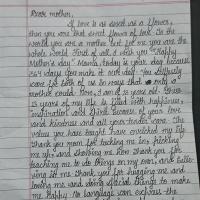 Dear mother,
If love is as sweet as a flower,
then you are that sweet flower of love. In the
world you are a mother but for me you are the
whole world. First of all I wish you "Happy
Mother's day" Mama, today is your day because
364 days you make it our day. You selflessly
care for both of us in ways that only a
mother could. Here, I am of 15 years old. These
15 years of my life is filled with happiness,
inspiration and think because of your love
and kindness and all your tender care. The
value you have taught have enriched my life.
thank you mom for tucking me in, picking
me up, and shaping me. Thank you for
teaching me to do things on my own, and
me. thank you for hugging me and
loving me and doing special things to make
me happy. No language can express the